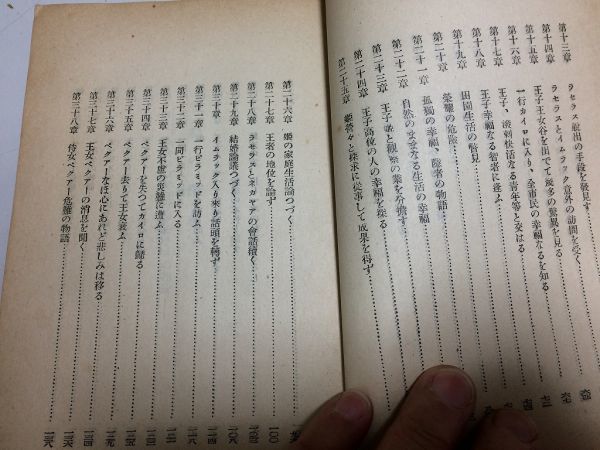 第十三章 ラセラス脱出の手段を發見す
第十四章 ラセラスとイムラック意外の訪問を受く
第十五章 王子王女谷を出でて幾多の驚異を見る
第十六章 一行カイロに入り、全市民の幸福なるを知る
第十七章 王子、潑剌快活なる青年等と交はる
第十八章 王子幸福なる智者に逢ふ
第十九章 田園生活の瞥見
第二十章 榮耀の危險
第二十一章 孤獨の幸福、隱者の物語
第二十二章 自然のままなる生活の幸福
第二十三章 王子妹と觀察の業を分擔す
第二十四章 王子高位の人の幸福を探る
第二十五章 姬營々と探求に從事して成果を得ず
第二十六章 姬の家庭生活論つづく
第二十七章 王者の地位を論ず
第二十八章 ラセラスとネカヤアの會話續く 一〇四
第二十九章 結婚論議つづく 一〇八
第三十章 イムラック入り來り話頭を轉ず 一一四
第三十一章 一行ピラミッドを訪ふ 一一八
第三十二章 一同ピラミッドに入る
第三十三章 王女不慮の災難に遭ふ
第三十四章 ペクアーを失つてカイロに歸る 一二五
第三十五章 ペクアー去りて王女哀ふ 一二九
第三十六章 ペクアーなほ心にあれど悲しみは移る 一三四
第三十七章 王女ペクアーの消息を聞く 一三六
第三十八章 侍女ペクアー危難の物語 一三八